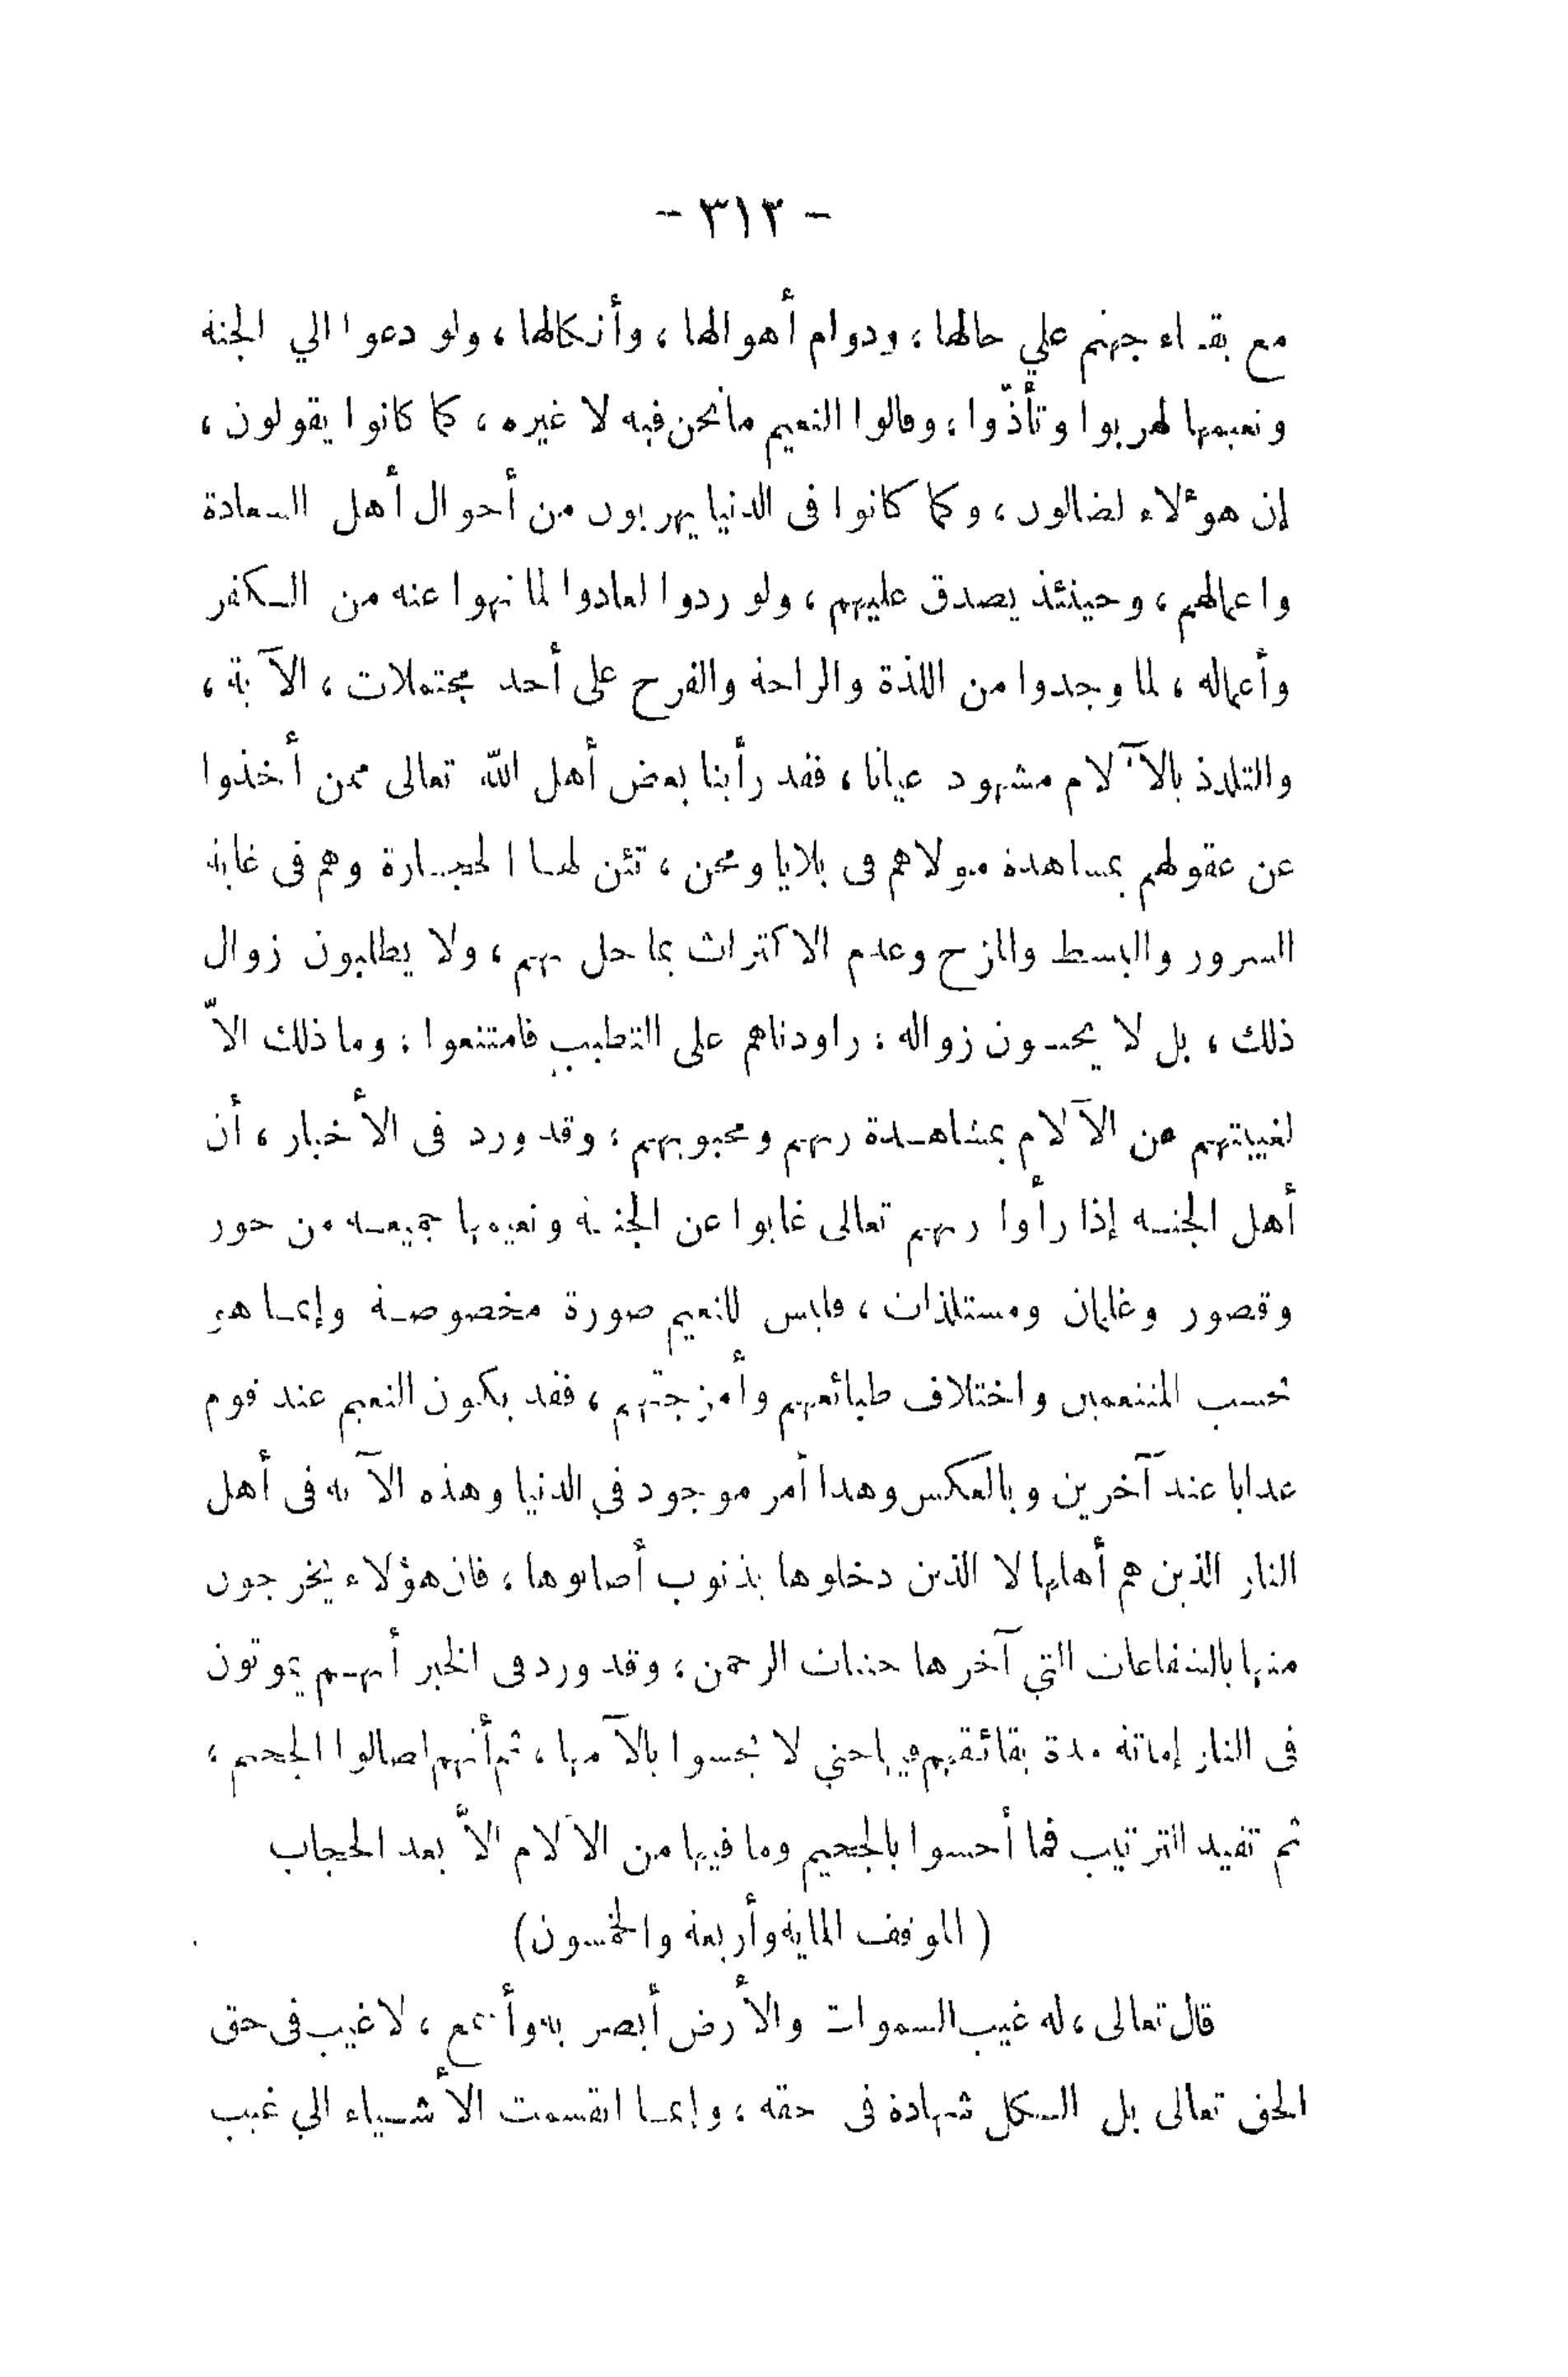 - ٣١٣ -
مع بقاء جهنم علي حالها، ودوام أهوالها، وأنكالها، ولو دعوا الي الجنة
ونعيمها لهربوا وتأذّوا، وقالوا النعيم ما نحن فيه لا غيره، كما كانوا يقولون،
إن هؤلاء لضالون، وكما كانوا فى الدنيا يهربون من أحوال أهل السعادة
واعمالهم، وحينئذ يصدق عليهم، ولو ردوا لعادوا لما نهوا عنه من الكفر
وأعماله، لما وجدوا من اللذة والراحة والفرح على أحد محتملات، الآية،
والتلذذ بالآلام مشهود عيانا، فقد رأينا بعض أهل الله تعالى ممن أخذوا
عن عقولهم بمشاهدة مولاهم فى بلايا ومحن، تئن لها الحجارة وهم فى غاية
السرور والبسط والمزح وعدم الاكتراث بما حل بهم، ولا يطلبون زوال
ذلك، بل لا يحبون زواله: راودناهم على التطبيب فامتنعوا: وما ذلك الاّ
لغيبتهم عن الآلام بمشاهدة ربهم ومحبوبهم: وقد ورد فى الأخبار، أن
أهل الجنة إذا رأوا ربهم تعالى غابوا عن الجنة ونعيمها جميعه من حور
وقصور وغلمان ومستلذات، فليس للنعيم صورة مخصوصة وإنما هو
بحسب المتنعمين واختلاف طبائعهم وأمزجتهم، فقد يكون النعيم عند قوم
عذابا عند آخرين وبالعكس وهذا أمر موجود في الدنيا وهذه الآية فى أهل
النار الذين هم أهلها لا الذين دخلوها بذنوب أصابوها، فان هؤلاء يخرجون
منها بالشفاعات التي آخرها حثيات الرحمن: وقد ورد فى الخبر أنهم يموتون
فى النار إماتة مدة بقائهم فيها حتي لا يحسوا بالآمها، ثم أنهم لصالوا الجحيم،
ثم تفيد الترتيب فما أحسوا بالجحيم وما فيها من الآلام الاّ بعد الحجاب
(الموقف المائة وأربعة والخمسون)
قال تعالى، له غيب السموات والأرض أبصر به وأسمع، لا غيب فى حق
الحق تعالى بل الكل شهادة فى حقه، وإنما انقسمت الأشياء الي غيب